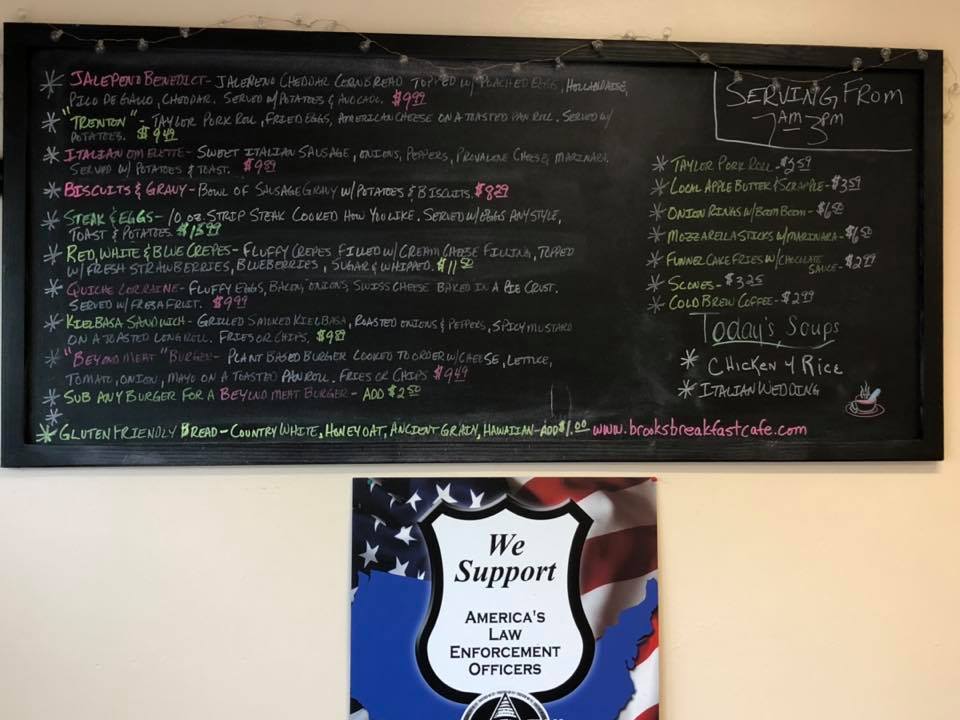 * JALEPENO BENEDICT - JALEPENO CHEDDAR CORNBREAD TOPPED W/ POACHED EGGS, HOLLANDAISE,
PICO DE GALLO, CHEDDAR. SERVED W/ POTATOES & AVOCADO. $9.99
* "TRENTON" - TAYLOR PORK ROLL, FRIED EGGS, AMERICAN CHEESE ON A TOASTED PAN ROLL. SERVED W/
POTATOES. $9.49
* ITALIAN OMELETTE - SWEET ITALIAN SAUSAGE, ONIONS, PEPPERS, PROVALONE CHEESE, MARINARA.
SERVED W/ POTATOES & TOAST. $9.89
* BISCUITS & GRAVY - BOWL OF SAUSAGE GRAVY W/ POTATOES & BISCUITS. $8.29
* STEAK & EGGS - 10 OZ. STRIP STEAK COOKED HOW YOU LIKE. SERVED W/ EGGS ANY STYLE,
TOAST & POTATOES. $13.99
* RED, WHITE & BLUE CREPES - FLUFFY CREPES FILLED W/ CREAM CHEESE FILLING, TOPPED
W/ FRESH STRAWBERRIES, BLUEBERRIES, SUGAR & WHIPPED. $11.50
* QUICHE LORRAINE - FLUFFY EGGS, BACON, ONIONS, SWISS CHEESE BAKED IN A PIE CRUST.
SERVED W/ FRESH FRUIT. $9.99
* KIELBASA SANDWICH - GRILLED SMOKED KIELBASA, ROASTED ONIONS & PEPPERS, SPICY MUSTARD
ON A TOASTED LONG ROLL. FRIES OR CHIPS. $9.89
* "BEYOND MEAT" BURGER - PLANT BASED BURGER COOKED TO ORDER W/ CHEESE, LETTUCE,
TOMATO, ONION, MAYO ON A TOASTED PAN ROLL. FRIES OR CHIPS $9.49
* SUB ANY BURGER FOR A BEYOND MEAT BURGER - ADD $2.50
*
* GLUTEN FRIENDLY BREAD - COUNTRY WHITE, HONEY OAT, ANCIENT GRAIN, HAWAIIAN - ADD $1.00 www.brooksbreakfastcafe.com
SERVING FROM
7AM-3PM
* TAYLOR PORK ROLL - $3.59
* LOCAL APPLE BUTTER & SCRAPPLE - $3.59
* ONION RINGS W/ BOOM BOOM - $6.50
* MOZZARELLA STICKS W/ MARINARA - $6.50
* FUNNER CAKE FRIES W/ CHOCOLATE
SAUCE - $2.99
* SCONES - $3.25
* COLD BREW COFFEE - $2.99
Today's Soups
* CHICKEN & RICE
* ITALIAN WEDDING
We
Support
AMERICA'S
LAW
ENFORCEMENT
OFFICERS